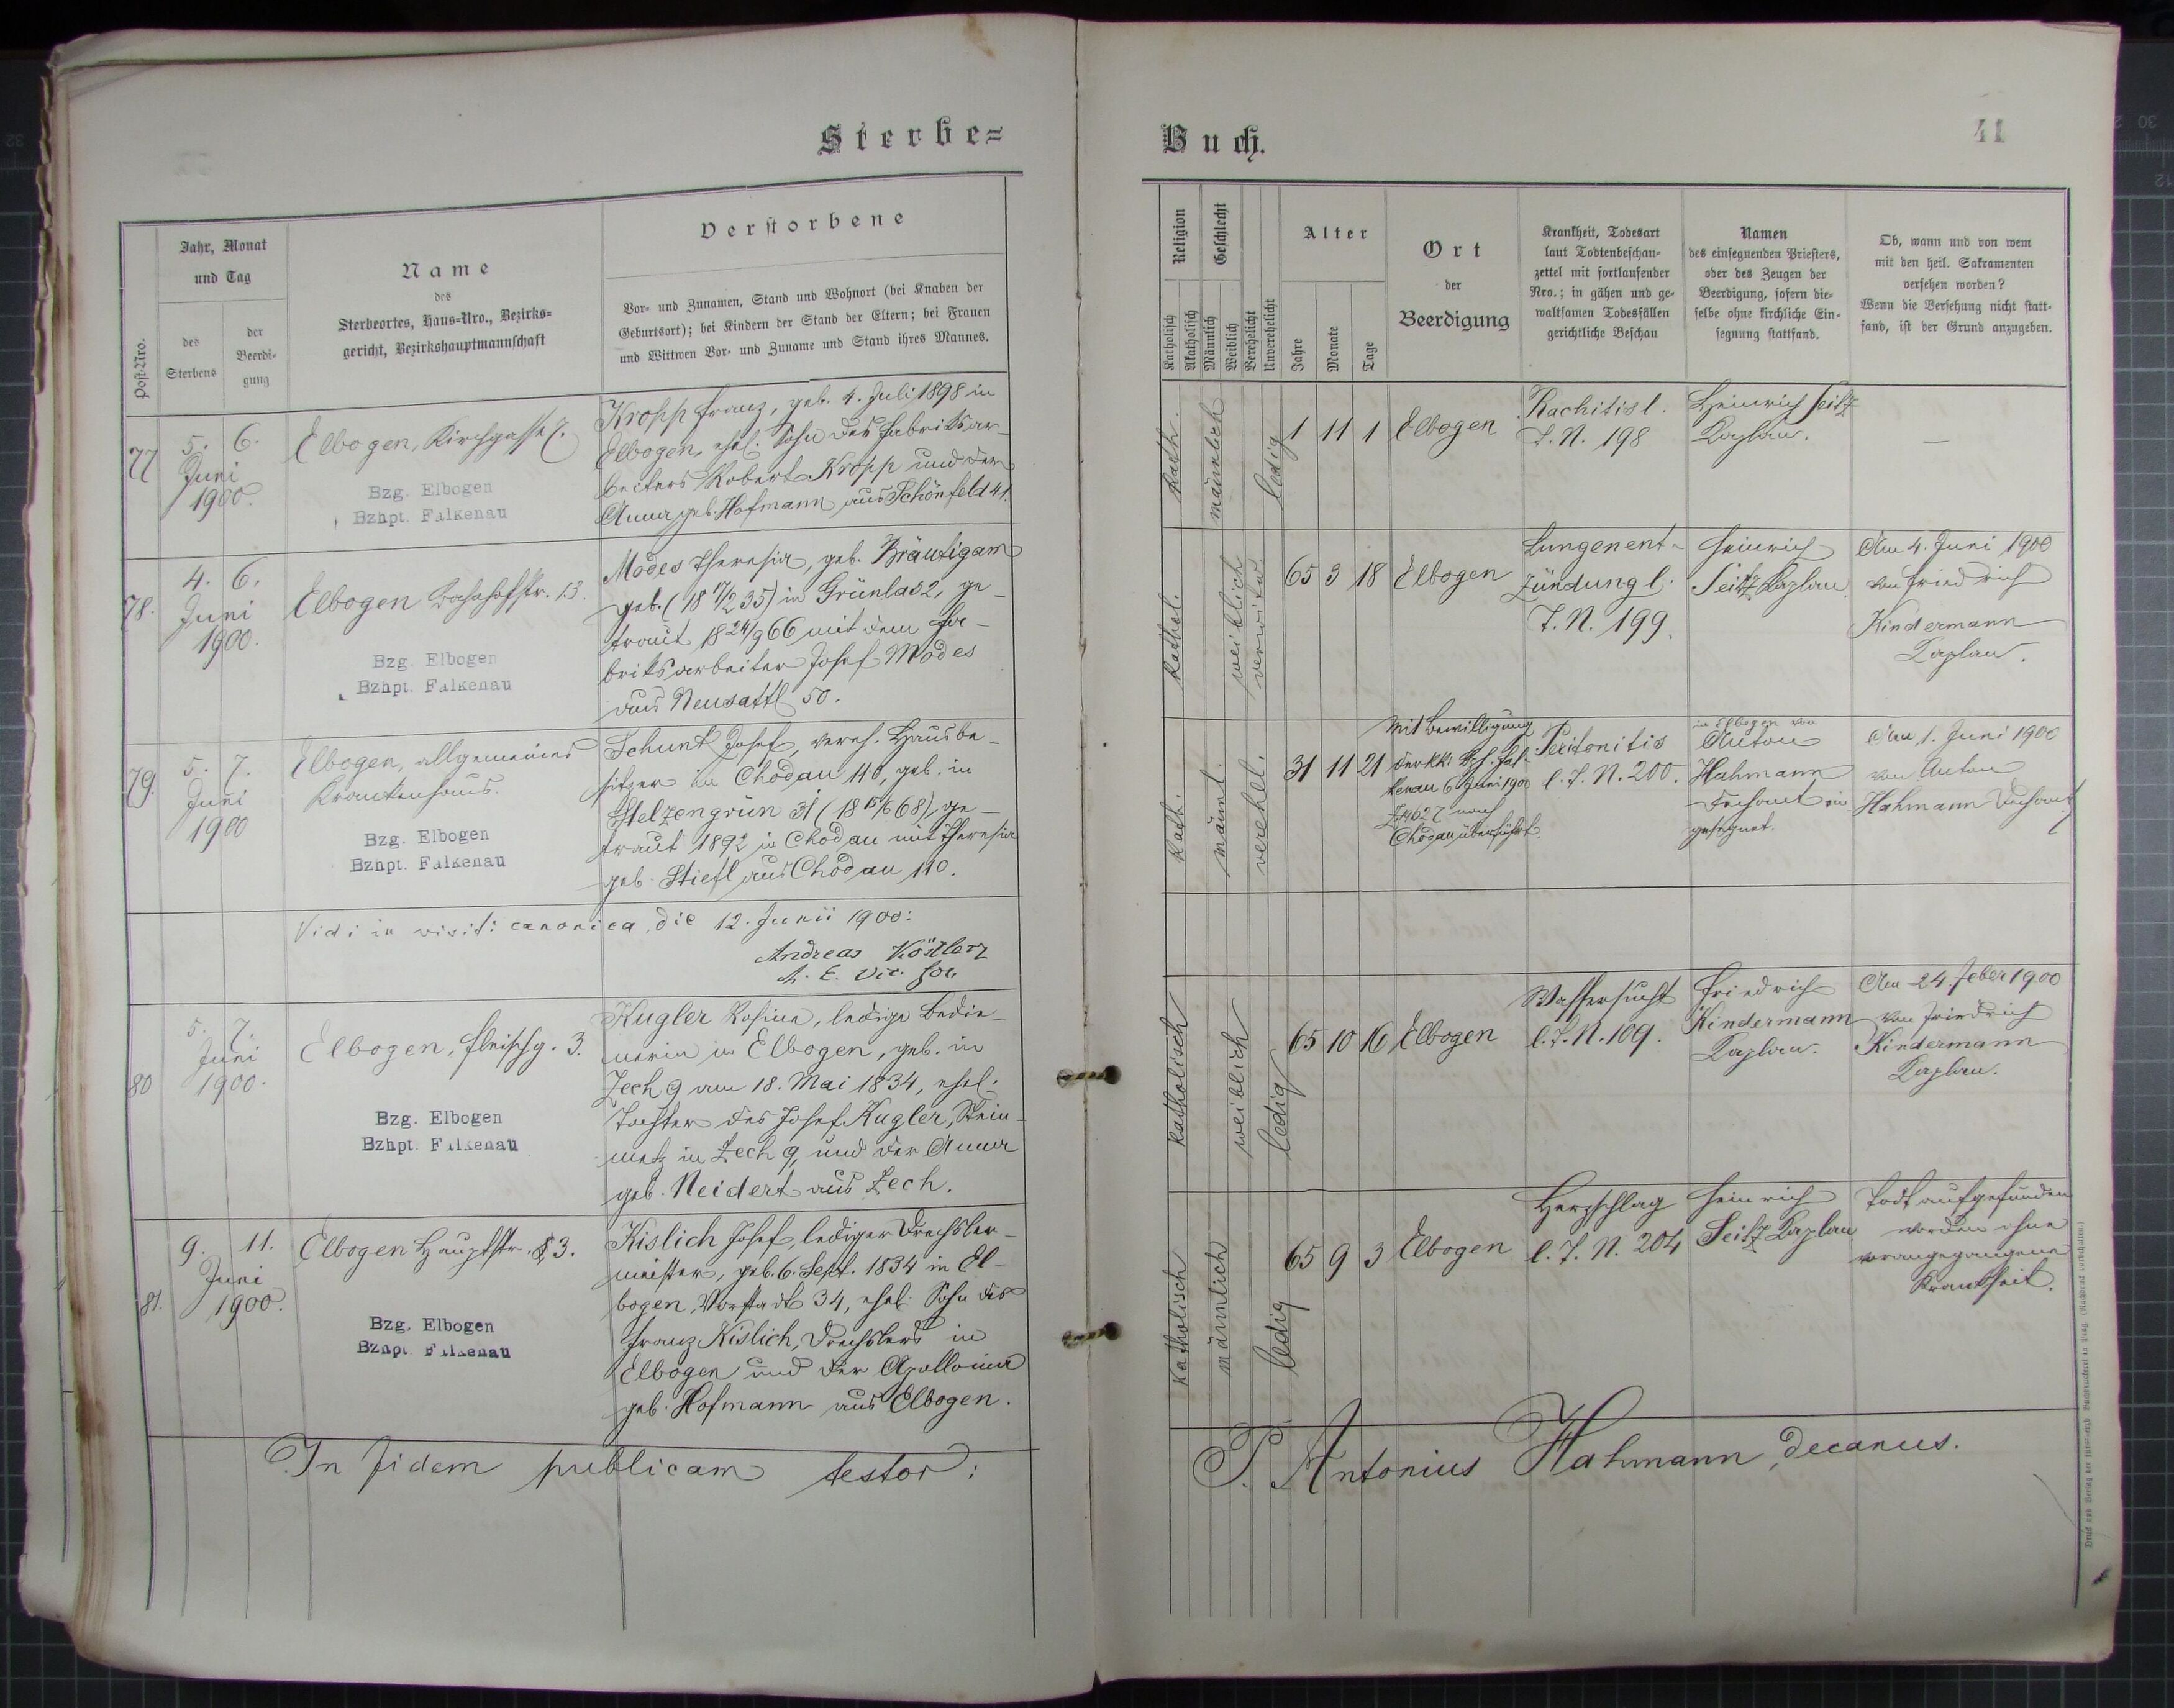 Sterbe=
Jahr, Monat
und Tag
Post-Nro.
des
Sterbens
der
Beerdi-
gung
Name
des
Sterbeortes, Haus-Nro., Bezirks-
gericht, Bezirkshauptmannschaft
Verstorbene
Vor- und Zunamen, Stand und Wohnort (bei Knaben der
Geburtsort); bei Kindern der Stand der Eltern; bei Frauen
und Wittwen Vor- und Zuname und Stand ihres Mannes.
77
5. 6.
Juni
1900.
Elbogen, Kirchgasse
Bzg. Elbogen
Bzhpt. Falkenau
Kropp Franz, geb. 4. Juli 1898 in
Elbogen, ehel. Sohn des Fabriksar-
beiters Robert Kropp und der
Anna geb. Hofmann aus Schönfeld 41.
78.
4. 6.
Juni
1900.
Elbogen Bahnhofstr. 13.
Bzg. Elbogen
Bzhpt. Falkenau
Modes Theresia, geb. Bräutigam
geb. (18 17/2 35) in Grünlas 2, ge-
traut 18 24/9 66 mit dem Fa-
briksarbeiter Josef Modes
aus Neusattl 50.
79.
5. 7.
Juni
1900
Elbogen, allgemeines
Krankenhaus.
Bzg. Elbogen
Bzhpt. Falkenau
Schunk Josef, vereh. Hausbe-
sitzer in Chodau 110, geb. in
Stelzengrün 31 (18 15/6 68), ge-
traut 1892 in Chodau mit Theresia
geb. Stiefl aus Chodau 110.
Vidi in visit: canonica, die 12. Junii 1900:
Andreas Köstler
A. E. Vic. for.
80
5. 7.
Juni
1900.
Elbogen, Fleischg. 3.
Bzg. Elbogen
Bzhpt. Falkenau
Kugler Rosina, ledige Bedie-
nerin in Elbogen, geb. in
Zech 9 am 18. Mai 1834, ehel.
Tochter des Josef Kugler, Stein-
metz in Zech 9, und der Anna
geb. Neidert aus Zech.
81.
9. 11.
Juni
1900.
Elbogen Hauptstr. 3.
Bzg. Elbogen
Bzhpt. Falkenau
Kislich Josef, lediger Drechsler-
meister, geb. 6. Sept. 1834 in El-
bogen, Vorstadt 34, ehel. Sohn des
Franz Kislich, Drechslers in
Elbogen und der Apollonia
geb. Hofmann aus Elbogen.
In fidem publicam testor:
Buch.
41
Religion
Geschlecht
Katholisch
Akatholisch
Männlich
Weiblich
Verehelicht
Unverehelicht
Alter
Jahre
Monate
Tage
Ort
der
Beerdigung
Krankheit, Todesart
laut Todtenbeschau-
zettel mit fortlaufender
Nro.; in gähen und ge-
waltsamen Todesfällen
gerichtliche Beschau
Namen
des einsegnenden Priesters,
oder des Zeugen der
Beerdigung, sofern die-
selbe ohne kirchliche Ein-
segnung stattfand.
Ob, wann und von wem
mit den heil. Sakramenten
versehen worden?
Wenn die Versehung nicht statt-
fand, ist der Grund anzugeben.
kath.
männlich
ledig
1 11 1 Elbogen
Rachitis l.
T. N. 198
Heinrich Seitz
Kaplan.
—
kathol.
weiblich
verwitw.
65 3 18 Elbogen
Lungenent-
zündung l.
T. N. 199.
Heinrich
Seitz Kaplan
Am 4. Juni 1900
von Friedrich
Kindermann
Kaplan.
kath.
männl.
verehel.
31 11 21
Mit Bewilligung
der k.k. Bzh. Fal-
kenau 6. Juni 1900
Z. 14627 nach
Chodau überführt.
Peritonitis
l. T. N. 200.
in Elbogen von
Anton
Hahmann
Dechant ein-
gesegnet.
Am 1. Juni 1900
von Anton
Hahmann Dechant
katholisch
weiblich
ledig
65 10 16 Elbogen
Wassersucht
l. T. N. 109.
Friedrich
Kindermann
Kaplan.
Am 24. Feber 1900
von Friedrich
Kindermann
Kaplan.
katholisch
männlich
ledig
65 9 3 Elbogen
Herzschlag
l. T. N. 204
Heinrich
Seitz Kaplan
Todt aufgefunden
worden ohne
vorangegangene
Krankheit.
P. Antonius Hahmann, decanus.